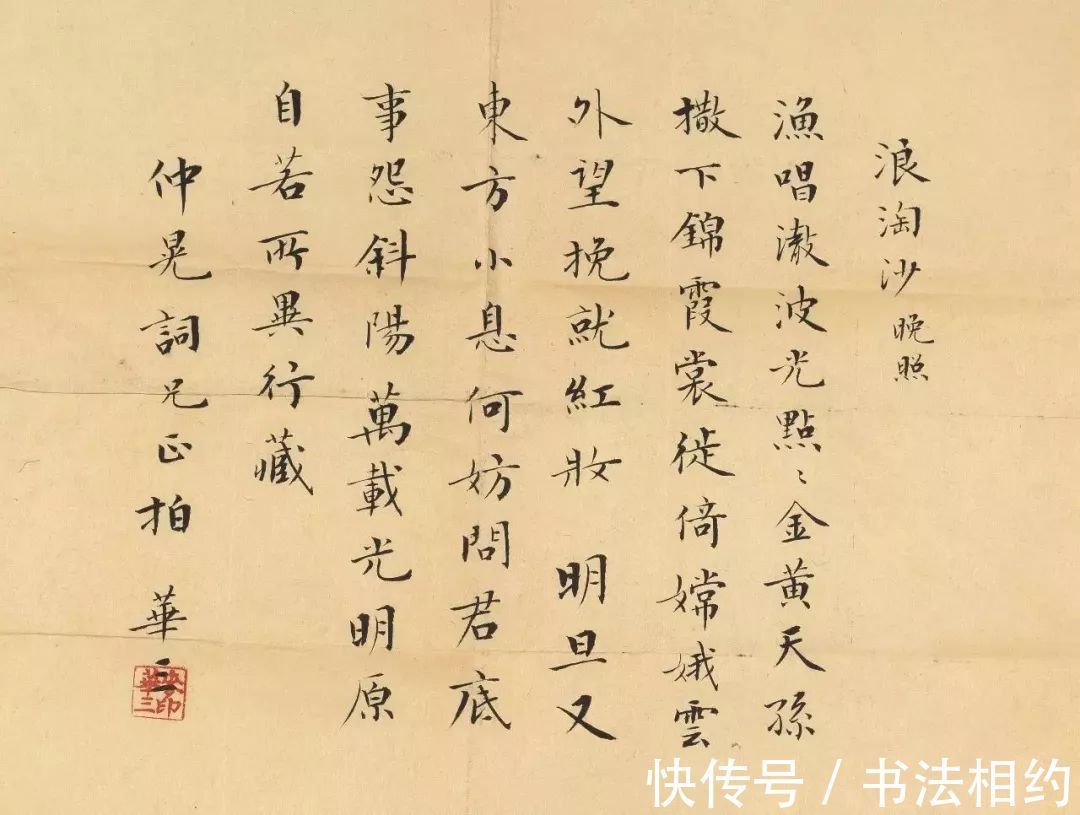 浪淘沙 晚照
漁唱澈波光點〻金黃天孫
撒下錦霞裳從倚嫦娥雲
外望挽就紅妝 明旦又
東方小息何妨問君底
事怨斜陽萬載光明原
自若所異行藏
仲晃詞兄正拍 華三
快传号 / 书法相约